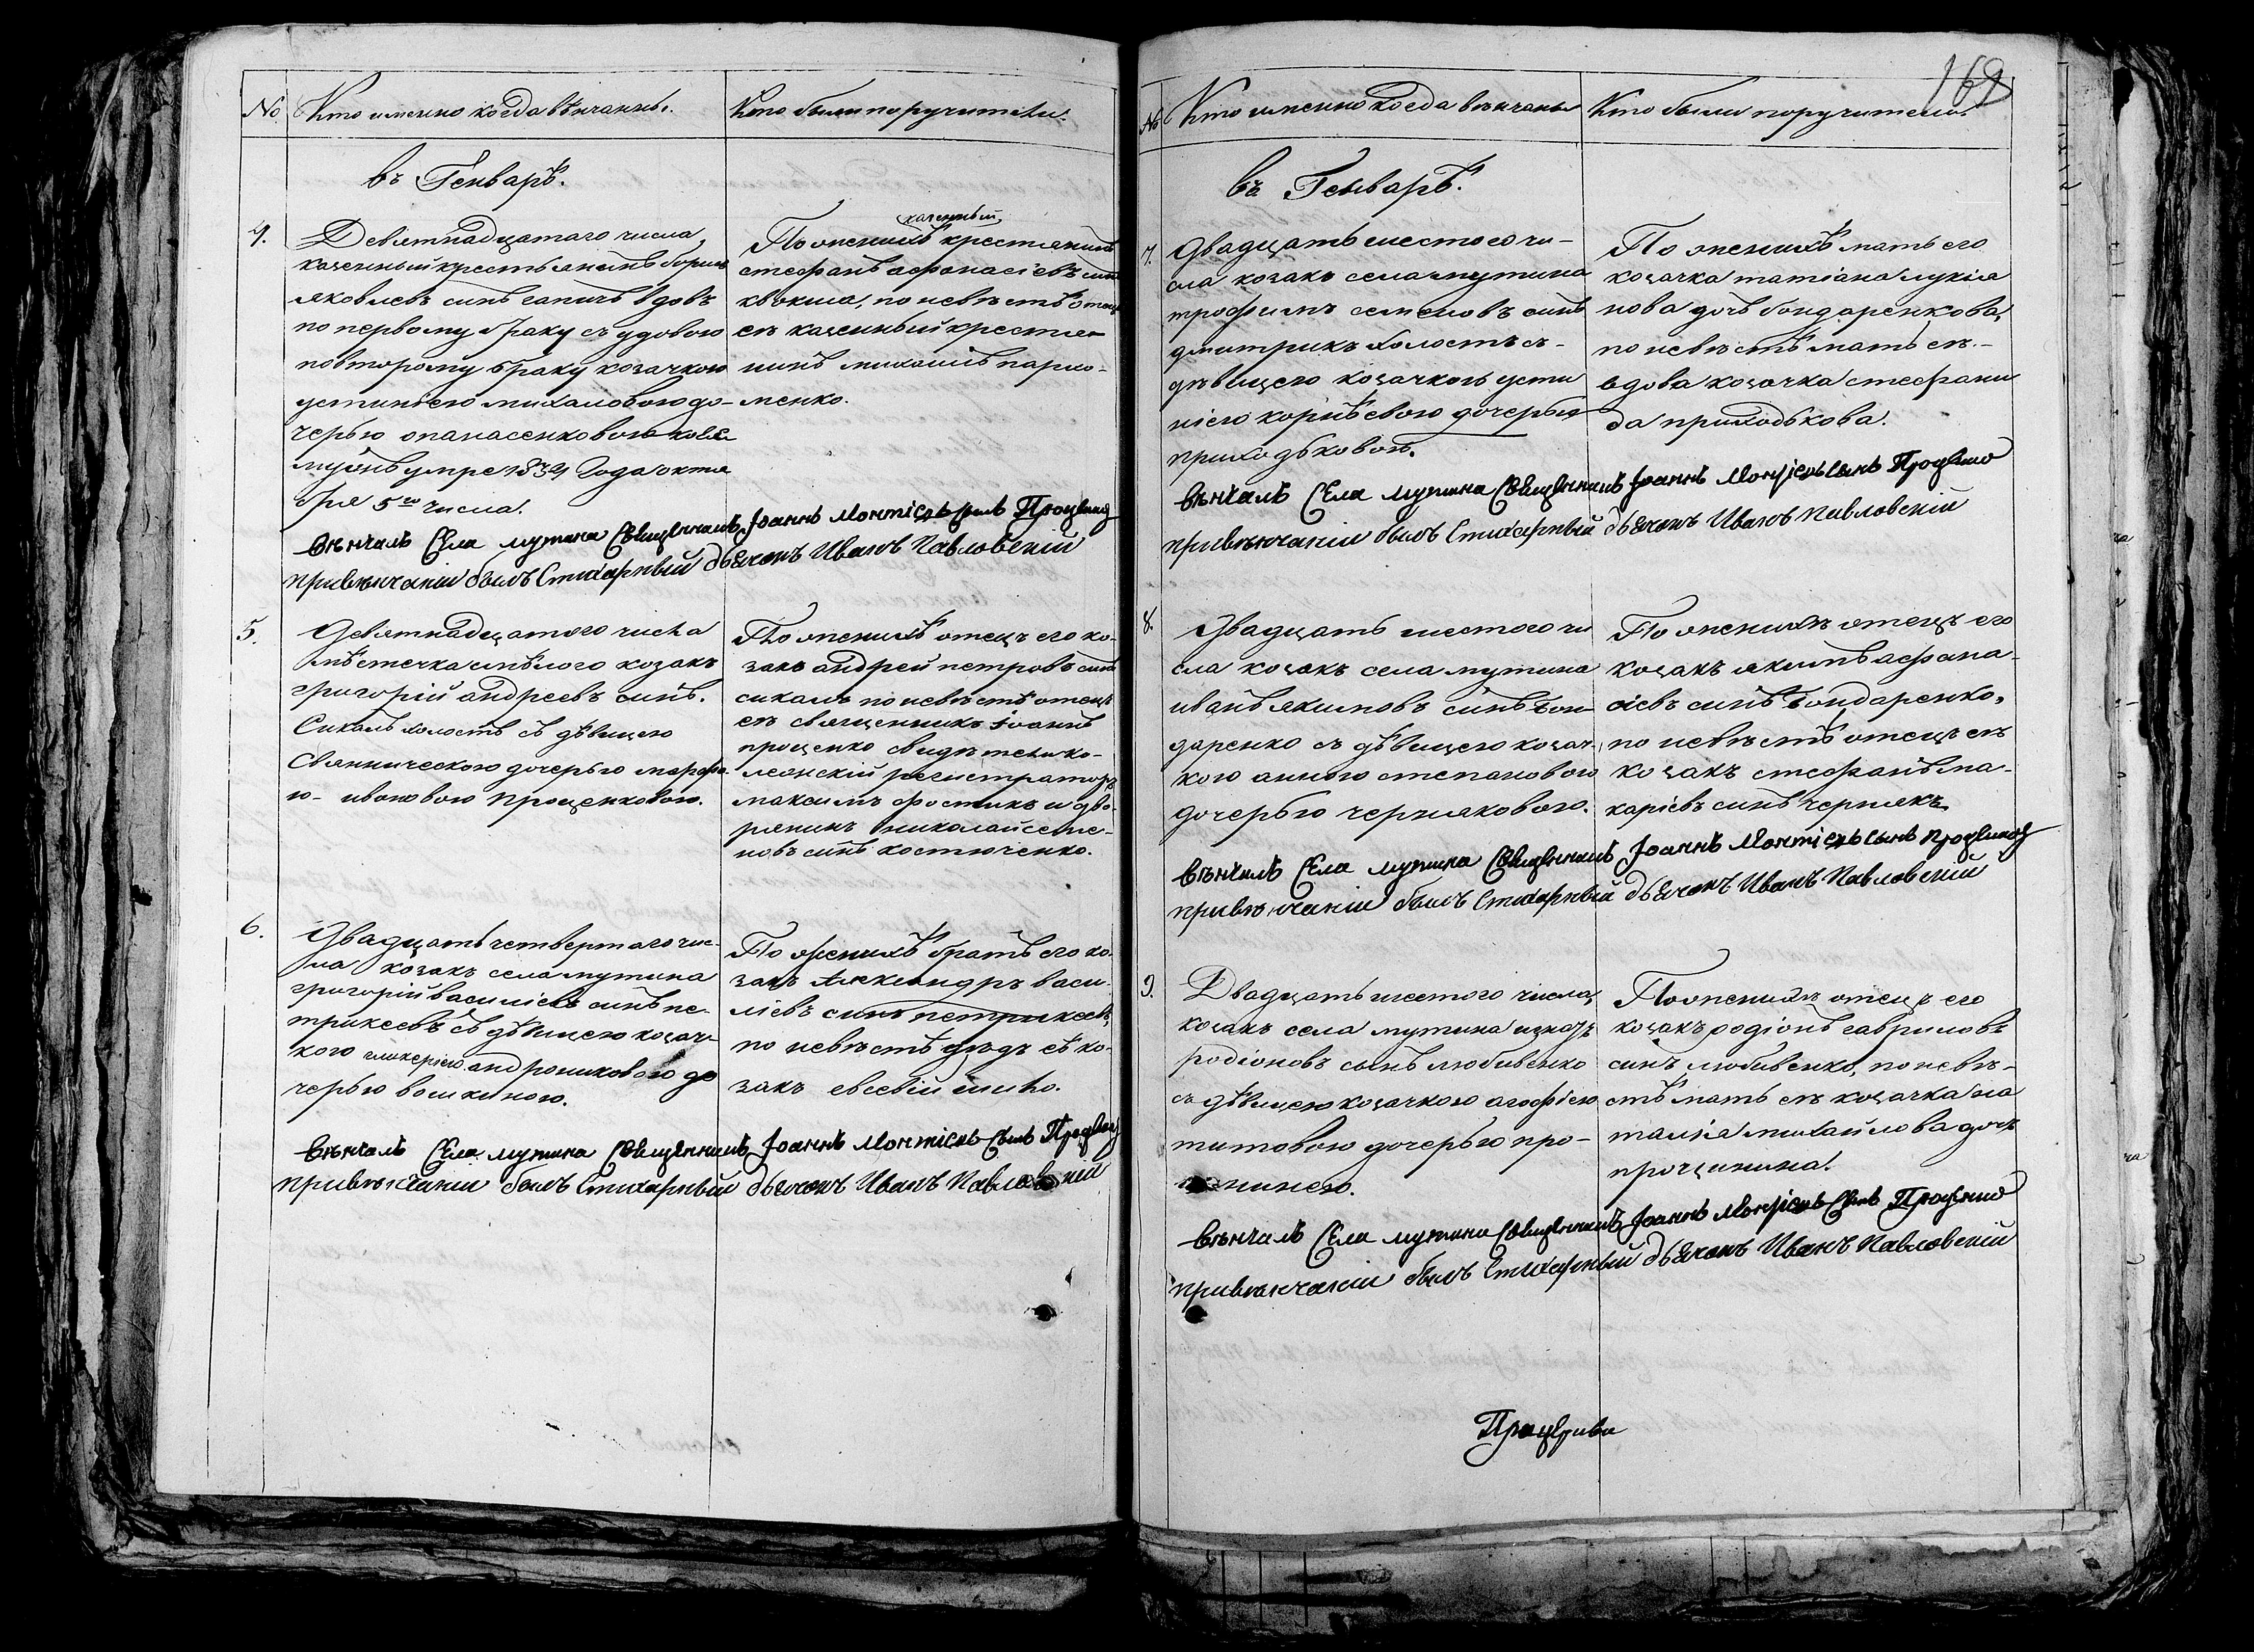 No
Кто именно когда вѣнчанны.
Кто были поручители.
въ Генварѣ.
4.
Девятнадцатаго числа,
казенный крестьянинъ борисъ
яковлевъ синъ сапичъ вдовъ
по первому браку съ удовою
повторому браку козачкою
устиніею михаловою до-
черью опанасенковою коея
мужъ умре 1834 Года октя
бря 5го числа.
По женихѣ казенный крестянинъ
стефанъ афанасіевъ синъ
квокша, по невѣстѣ отецъ
еѣ казенный крестья-
нинъ михаилъ пархо-
менко.
Вѣнчалъ Села мутина Священникъ Іоаннъ Проценко
привѣнчаніи былъ Стихарный дьячокъ Иванъ Павловскій
5.
Девятнадцатого числа
мѣстечка смѣлого козакъ
григорій андреевъ синъ.
Сикалъ холостъ съ дѣвицею
Свянническою дочерью марфо
ю- ивановою проценковою.
По женихѣ отецъ его ко-
закъ андрей петровъ синъ
сикалъ по невѣстѣ отецъ
еѣ священникъ іоаннъ
проценко свидѣтели ко-
лежскій регистраторъ
максимъ фостикъ и дво-
рянинъ николай семе-
новъ синъ костюченко.
6.
Двадцать четвертаго чис-
ла козакъ села мутина
григорій василіевъ синъ пе-
трикеевъ съ дѣвицею козач-
кою гликеріею андрониковою до
черью вошкиною.
По женихѣ братъ его ко-
закъ Александръ васи-
ліевъ синъ петрикеевъ,
по невѣстѣ дѣдъ еѣ ко-
закъ евсевій шило.
Вѣнчалъ Села мутина Священникъ Іоаннъ
привѣнчаніи былъ Стихарный дьячокъ Иванъ Павловскій
169
No
Кто именно когда вѣнчаны
Кто были поручители.
въ Генварѣ.
7.
Двадцать шестого чи-
сла козакъ села мутина
трофимъ семеновъ синъ
дмитрикъ холостъ съ-
дѣвицею козачкою усти
ніею корнѣевою дочерью
приходьковой.
По женихѣ мать его
козачка татіана лукія
нова дочь бондаренкова,
по невѣстѣ мать еѣ.-
вдова козачка стефани
да приходькова.
Вѣнчалъ Села мутина Священникъ Іоаннъ Проценко
привѣнчаніи былъ Стихарный дьячокъ Иванъ Павловскій
8.
Двадцать шестого чи
сла козакъ села мутина
иванъ якимовъ синъ бон
даренко съ дѣвицею козач-
кою анною степановою
дочерью черняковою.
По женихѣ отецъ его
козакъ якимъ афана-
сіевъ синъ бондаренко,
по невѣстѣ отецъ еѣ
козакъ стефанъ ма-
каріевъ синъ чернякъ
Вѣнчалъ Села мутина Священникъ Іоаннъ
привѣнчаніи былъ Стихарный дьячокъ Иванъ Павловскій
9.
Двадцать шестого числа,
козакъ села мутина
родіоновъ сынъ любивенко
съ дѣвицею козачкою агафіею
титовою дочерью про-
ниною.
По женихѣ отецъ его
козакъ родіонъ гавриловъ
синъ любивенко, по невѣ-
стѣ мать еѣ козачка на
талія михайлова дочь
прощинина.
Вѣнчалъ Села мутина Священникъ Іоаннъ Проценко
привѣнчаніи былъ Стихарный дьячокъ Иванъ Павловскій